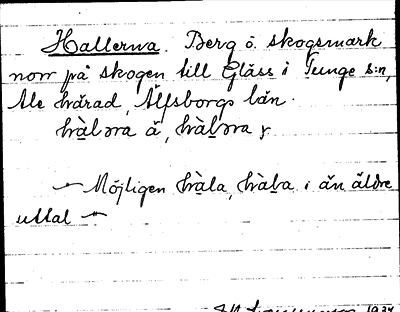 Hallerna. Berg o. skogsmark
norr på skogen till Gläss i Tunge s:n,
Ale härad, Älfsborgs län.
hàləra ä, hàləra
– Möjligen hàla, hàla i än äldre
uttal –